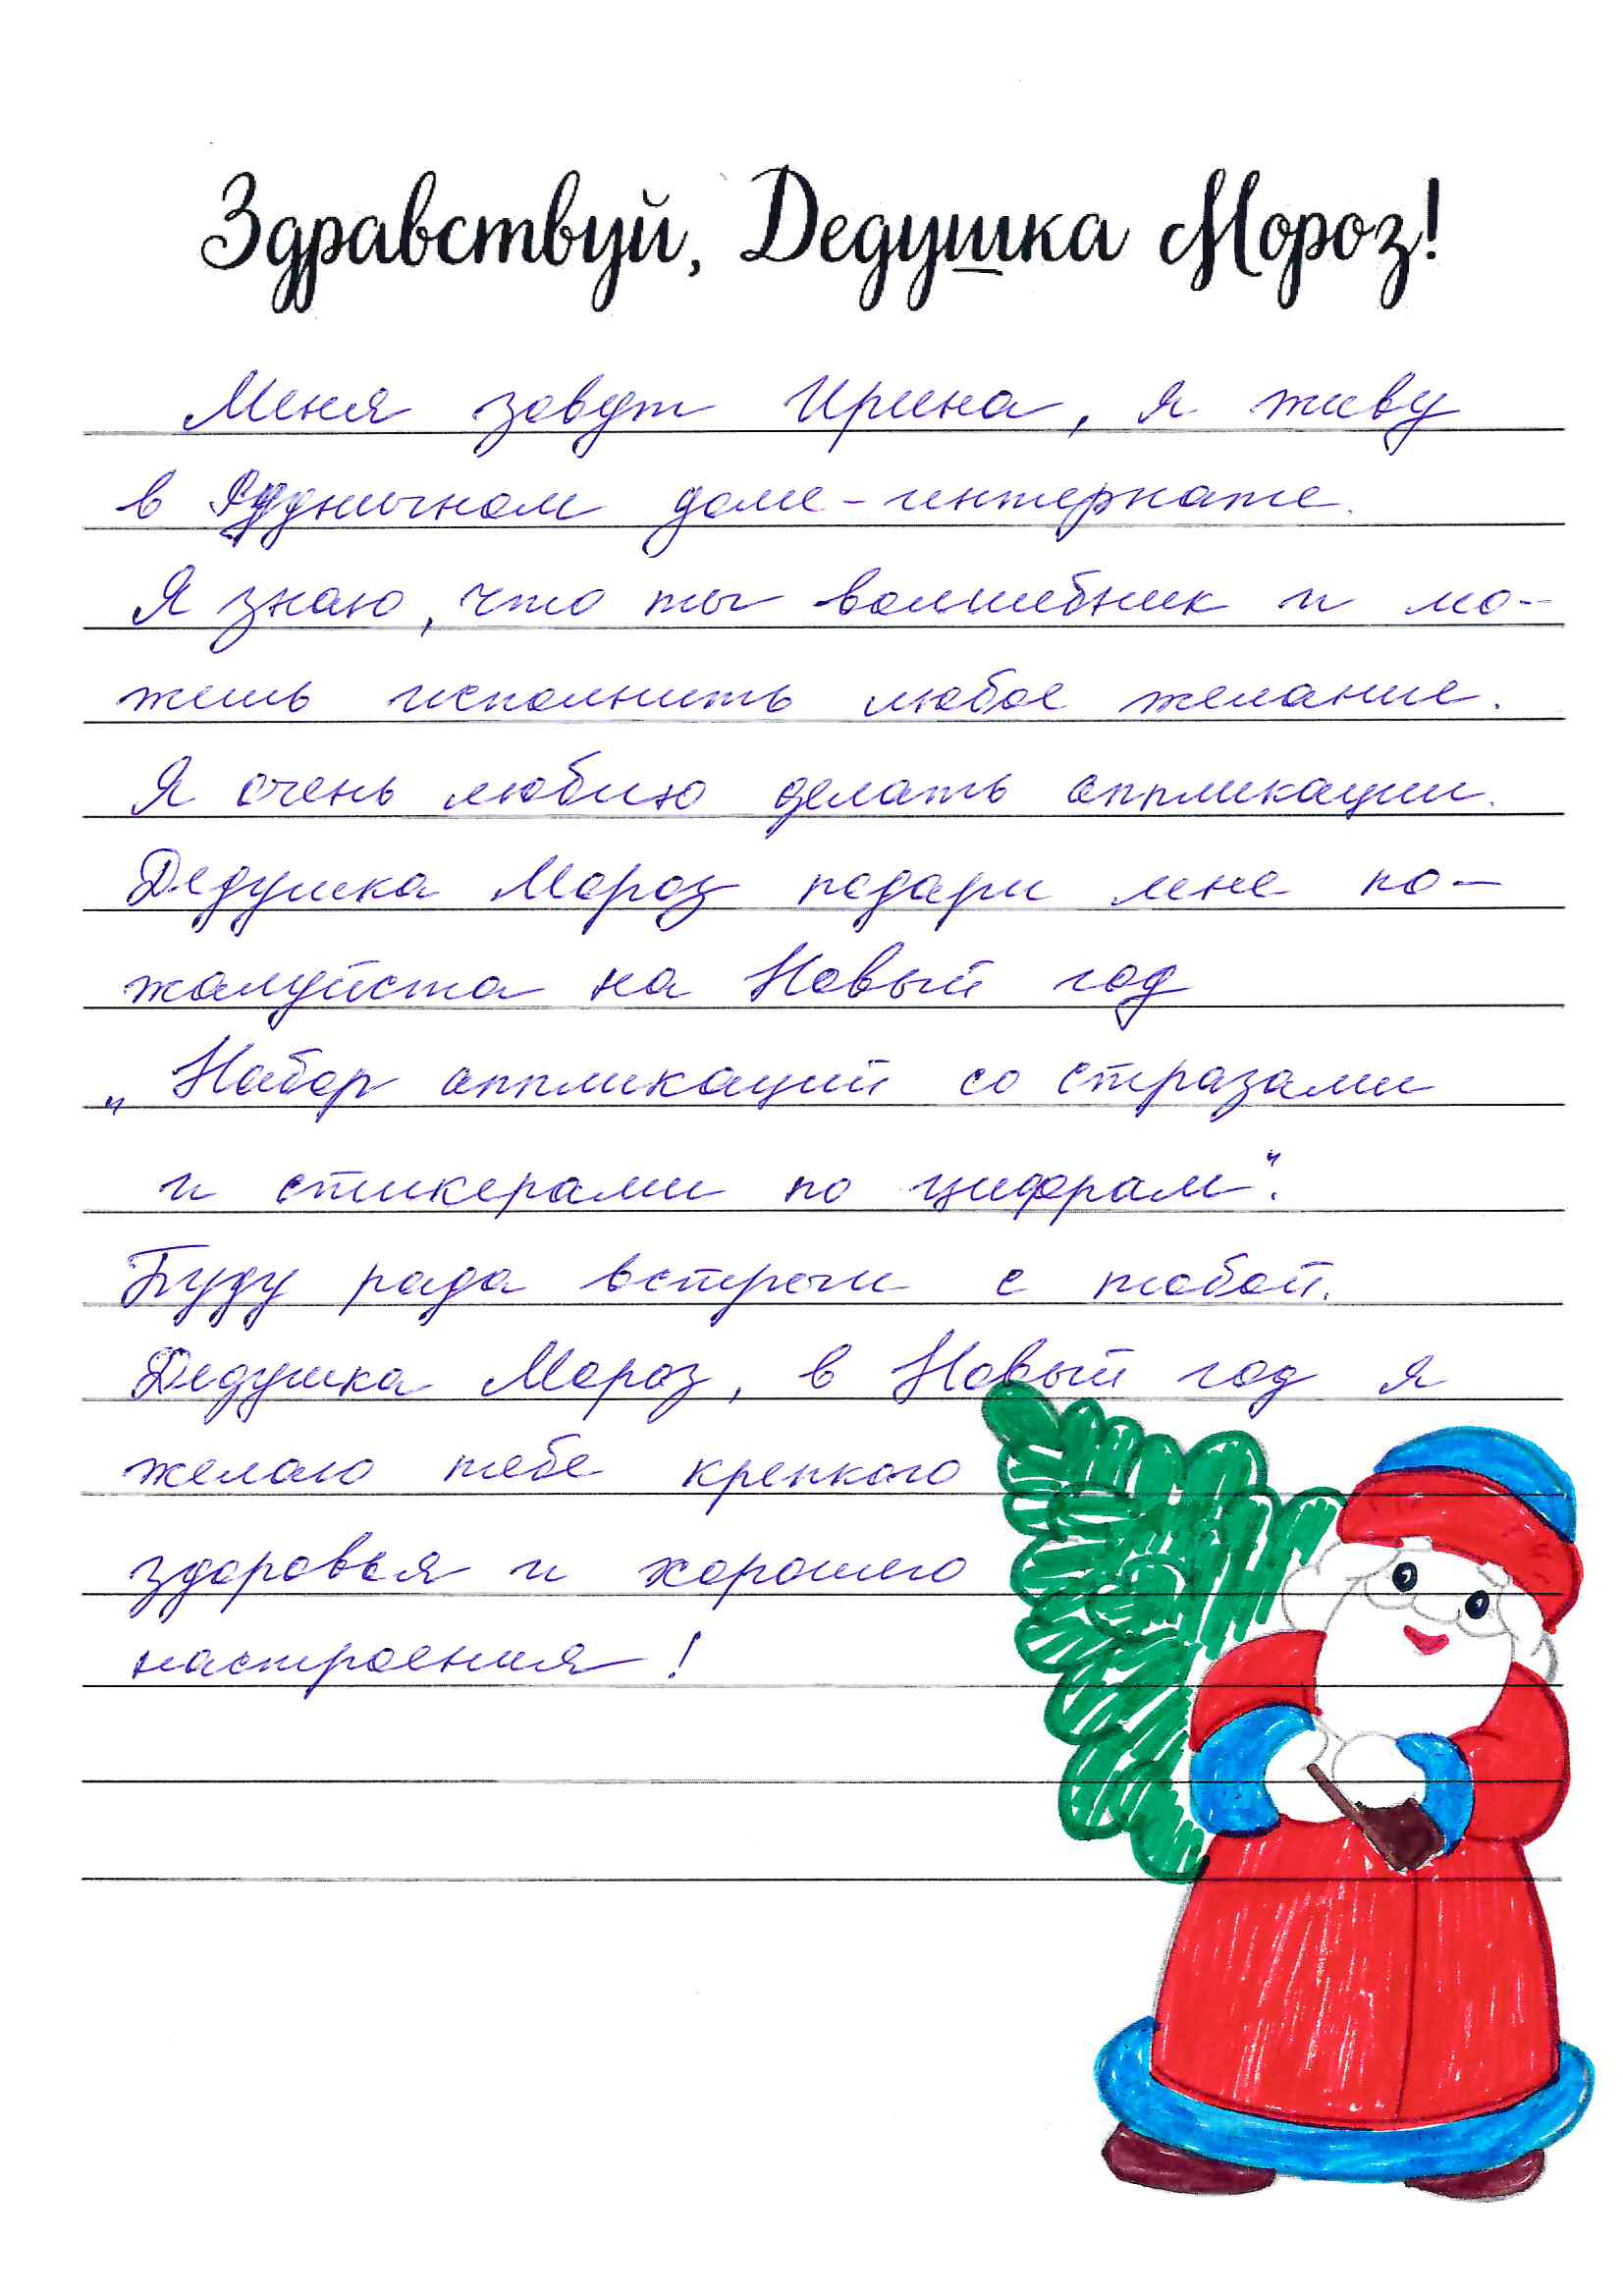 Здравствуй, Дедушка Мороз!
Меня зовут Ирина, я живу
в доме-интернате.
Я знаю, что ты волшебник и мо-
жешь исполнить любое желание.
Я очень люблю делать аппликации.
Дедушка Мороз подари мне по-
жалуйста на Новый год
„Набор аппликаций со стразами
и стикерами по цифрам".
Буду рада встречи с тобой.
Дедушка Мороз, в Новый год я
желаю тебе крепкого
здоровья и хорошего
настроения!